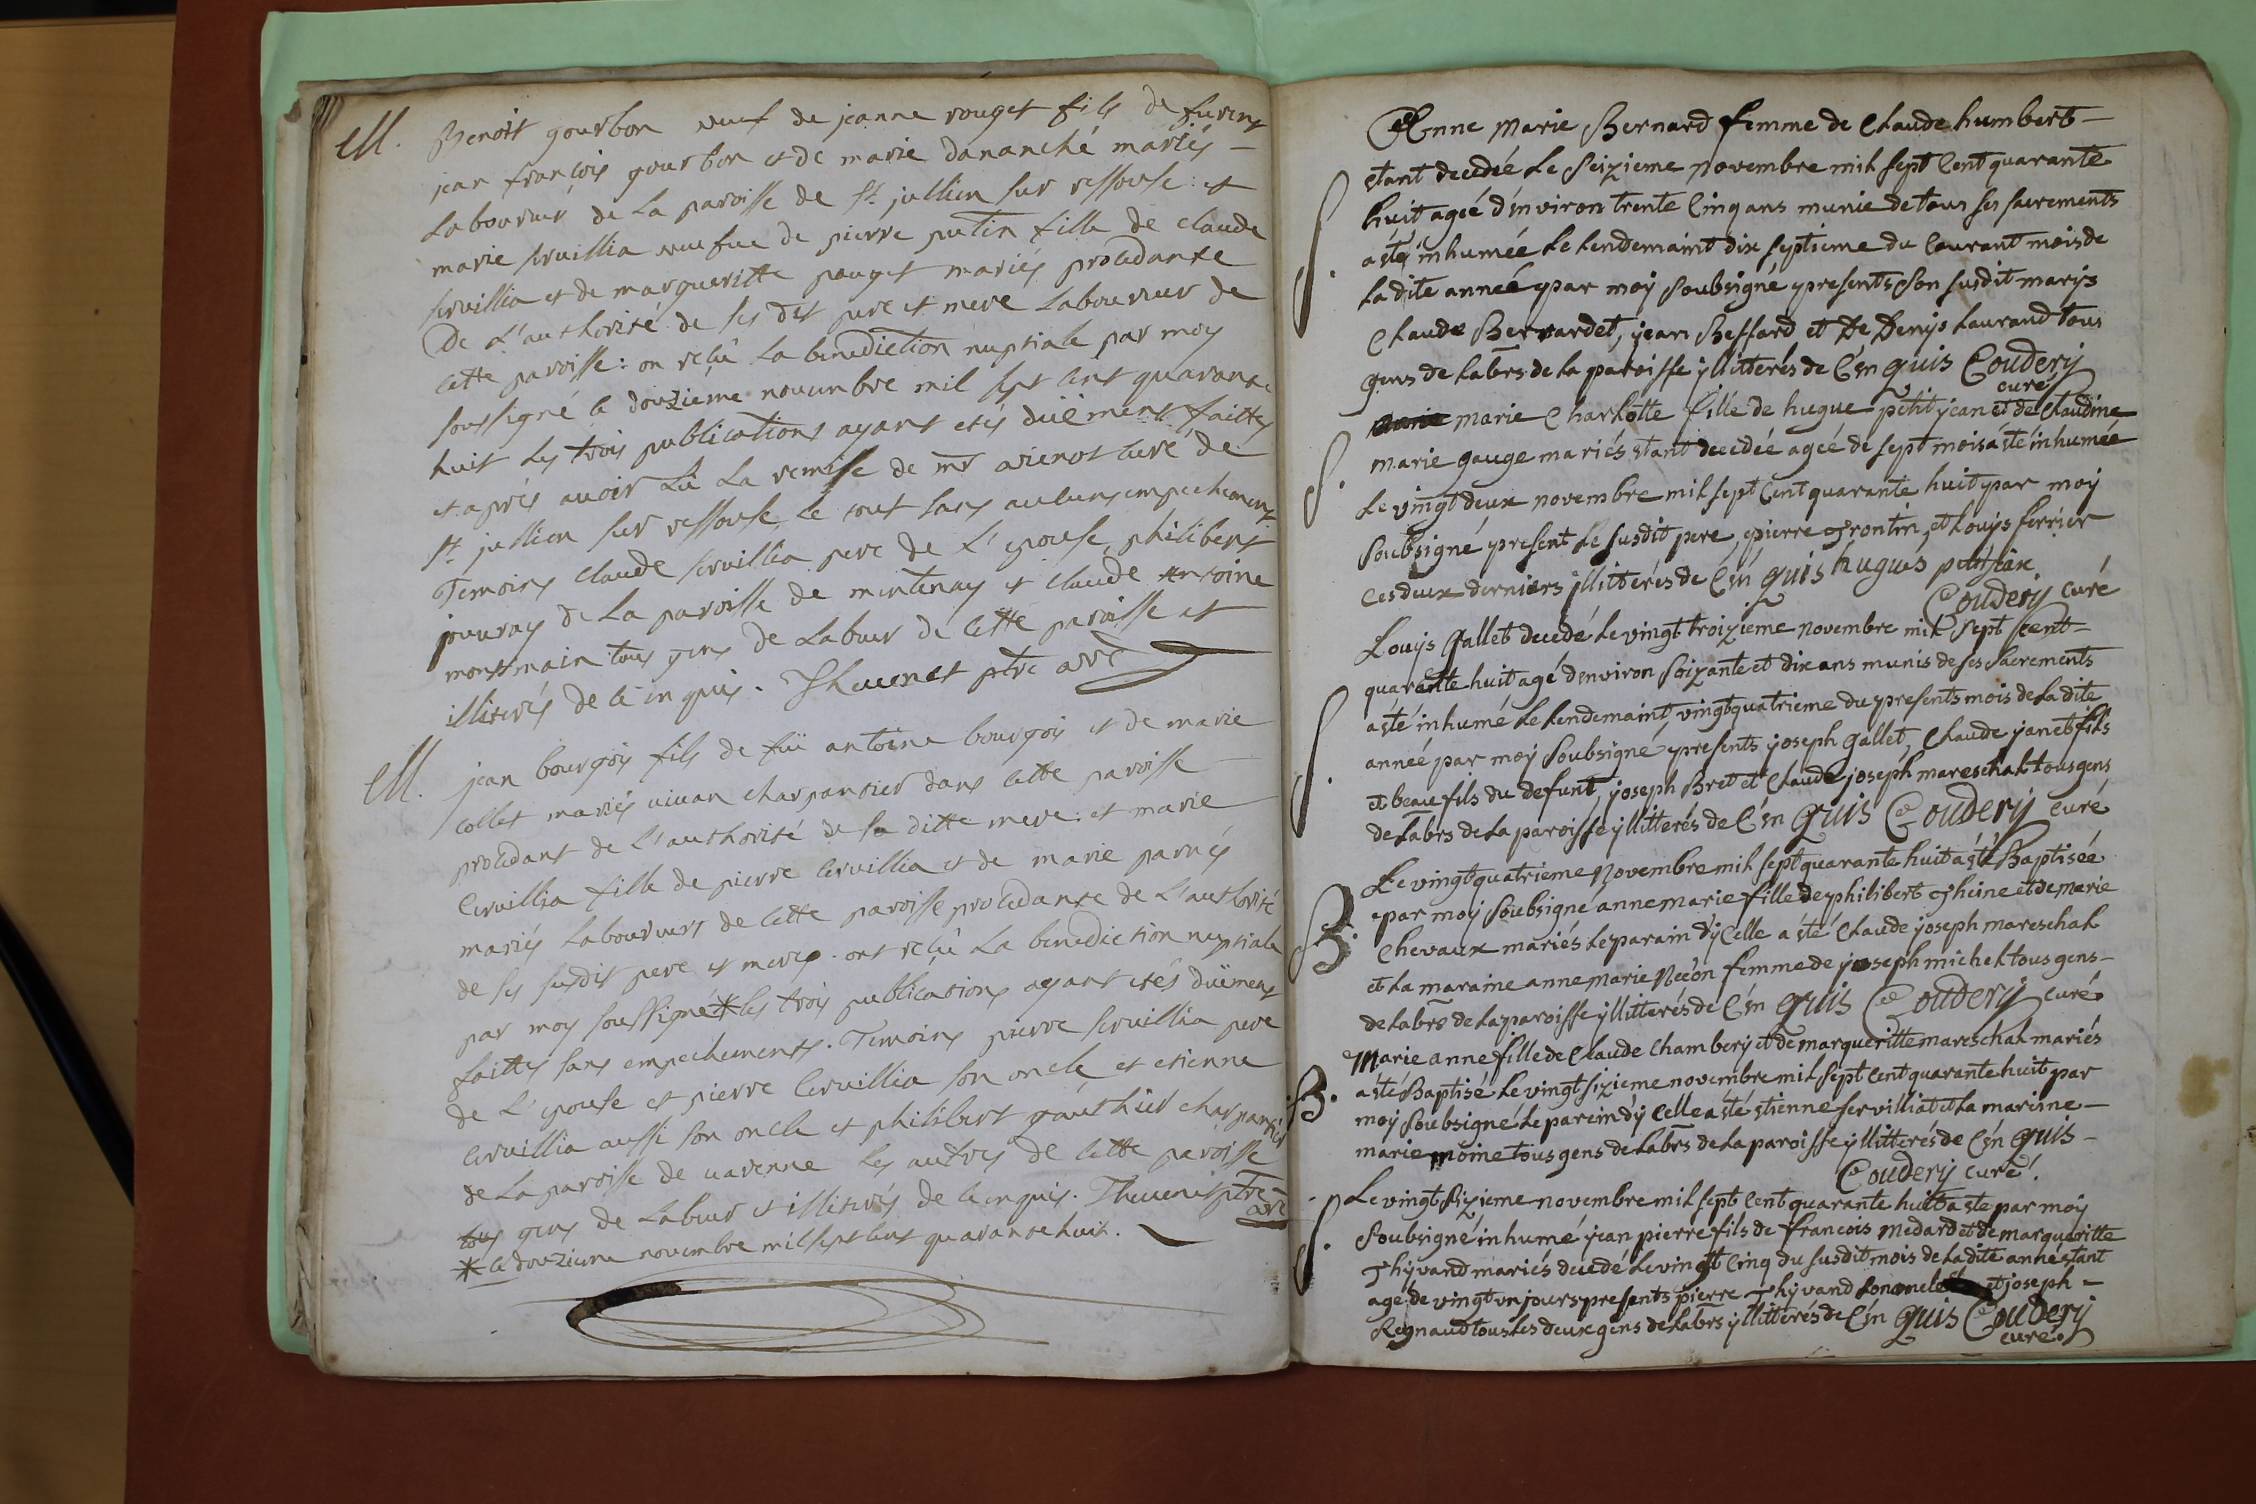 M. Benoist gourbon veuf de jeanne rouget fils de furent
jean françois gourbon et de marie dananché mariés –
Laboureur de La paroisse de st. jullien sur ressouse : et
marie servillia veufue de pierre putin fille de claude
servillia et de margueritte pouget mariés procedante
De L'authorité de ses dit pere et mere Laboureur de
cette paroisse : on reçû La benediction nuptiale par moy
soussigné le douzieme novembre mil sept cent quarante
huit Les trois publications ayant etés duëment faittes
et après avoir Lû La remise de mr arienot curé de
st. jullien sur ressouse Le tout sans aucuns empechement
Temoins claude servillia pere de L'epouse philibert
pauray de La paroisse de mentenay et claude antoine
montmain tous gens de Labeur de cette paroisse et
illiterés de ce enquis. Thevenet ptre
M. jean bourgois fils de fuë antoine bourgois et de marie
collet mariés vivan charpantier dans cette paroisse
procedant de L'authorité de sa ditte mere : et marie
Cervillia fille de pierre Cervillia et de marie parnés
mariés Laboureurs de cette paroisse procedante de L'authorité
de ses susdit pere et meres ont reçû La benediction nuptiale
par moy soussigné * les trois publications ayant etés duëment
faittes sans empechements. Temoins pierre servillia pere
de L'epouse et pierre Cervillia son oncle et etienne
Cervillia aussi son oncle et philibert gauthier charpantier
de La paroisse de varenne Les autres de cette paroisse
tous gens de Labeur et illiterés de ce enquis. Thevenet ptre
* le douzieme novembre mil sept cent quarante huit.
Anne Marie Bernard femme de Claude humbert –
S. etant decedée Le Seizieme Novembre mil sept Cent quarante
huit ageé d'environ trente Cinq ans munie de tous ses sacrements
a sté inhumée Le Lendemaint dix septieme du Courant mois de
La dite année par moy Soubsigné presents Son susdit marys
Claude Bernardet, jean Beffard et De Denys Laurand tous
gens de Labrs de la paroisse yllitterés de C'en quis Coudery
curé
marie Charlotte fille de hugue petit jean et de Claudine
S. marie gauge mariés etant decedée ageé de sept mois a sté inhumée
Le vingt deux novembre mil sept Cent quarante huit par moy
Soubsigné present Le susdit pere, pierre frontin, et Louys ferrier
Ces deux derniers yllitterés de C'en quis hugues petitjan
Coudery curé
Louys Gallet decedé Le vingt troizieme novembre mil sept Cent –
quarante huit agé d'environ Soixante et dix ans munis de ses sacrements
S. a sté inhumé Le Lendemaint vingt quatrieme du presents mois de La dite
année par moy Soubsigné presents joseph gallet, Claude janet fils
et beau fils du defunt, joseph Bret et Claude joseph mareschal tous gens
de Labrs de La paroisse yllitterés de C'en quis Coudery curé
Le vingt quatrieme Novembre mil sept quarante huit a sté Baptisée
B. par moy Soubsigné anne marie fille de philibert Theine et de marie
Chevaux mariés Le parain d'y Celle a sté Claude joseph mareschal
et La maraine anne marie Necon femme de joseph michel tous gens –
de Labrs de La paroisse yllitterés de C'en quis Coudery curé
Marie anne fille de Claude Chambery et de margueritte mareschal mariés
B. a sté Baptisé Le vingt sizieme novembre mil sept Cent quarante huit par
moy Soubsigné Le parein d'y Celle a sté etienne servilliat et La mareine –
marie moine tous gens de Labrs de La paroisse yllitterés de C'en quis –
Coudery curé.
Le vingt Sizieme novembre mil sept Cent quarante huit a sté par moy
S. Soubsigné inhumé jean pierre fils de francois medard et de margueritte
Thyvand mariés decedé Le vingt Cinq du susdit mois de La dite anneé etant
agé de vingt un jours presents pierre Thyvand Son oncle et joseph =
Regnaud tous Les deux gens de Labrs yllitterés de C'en quis Coudery
curé.